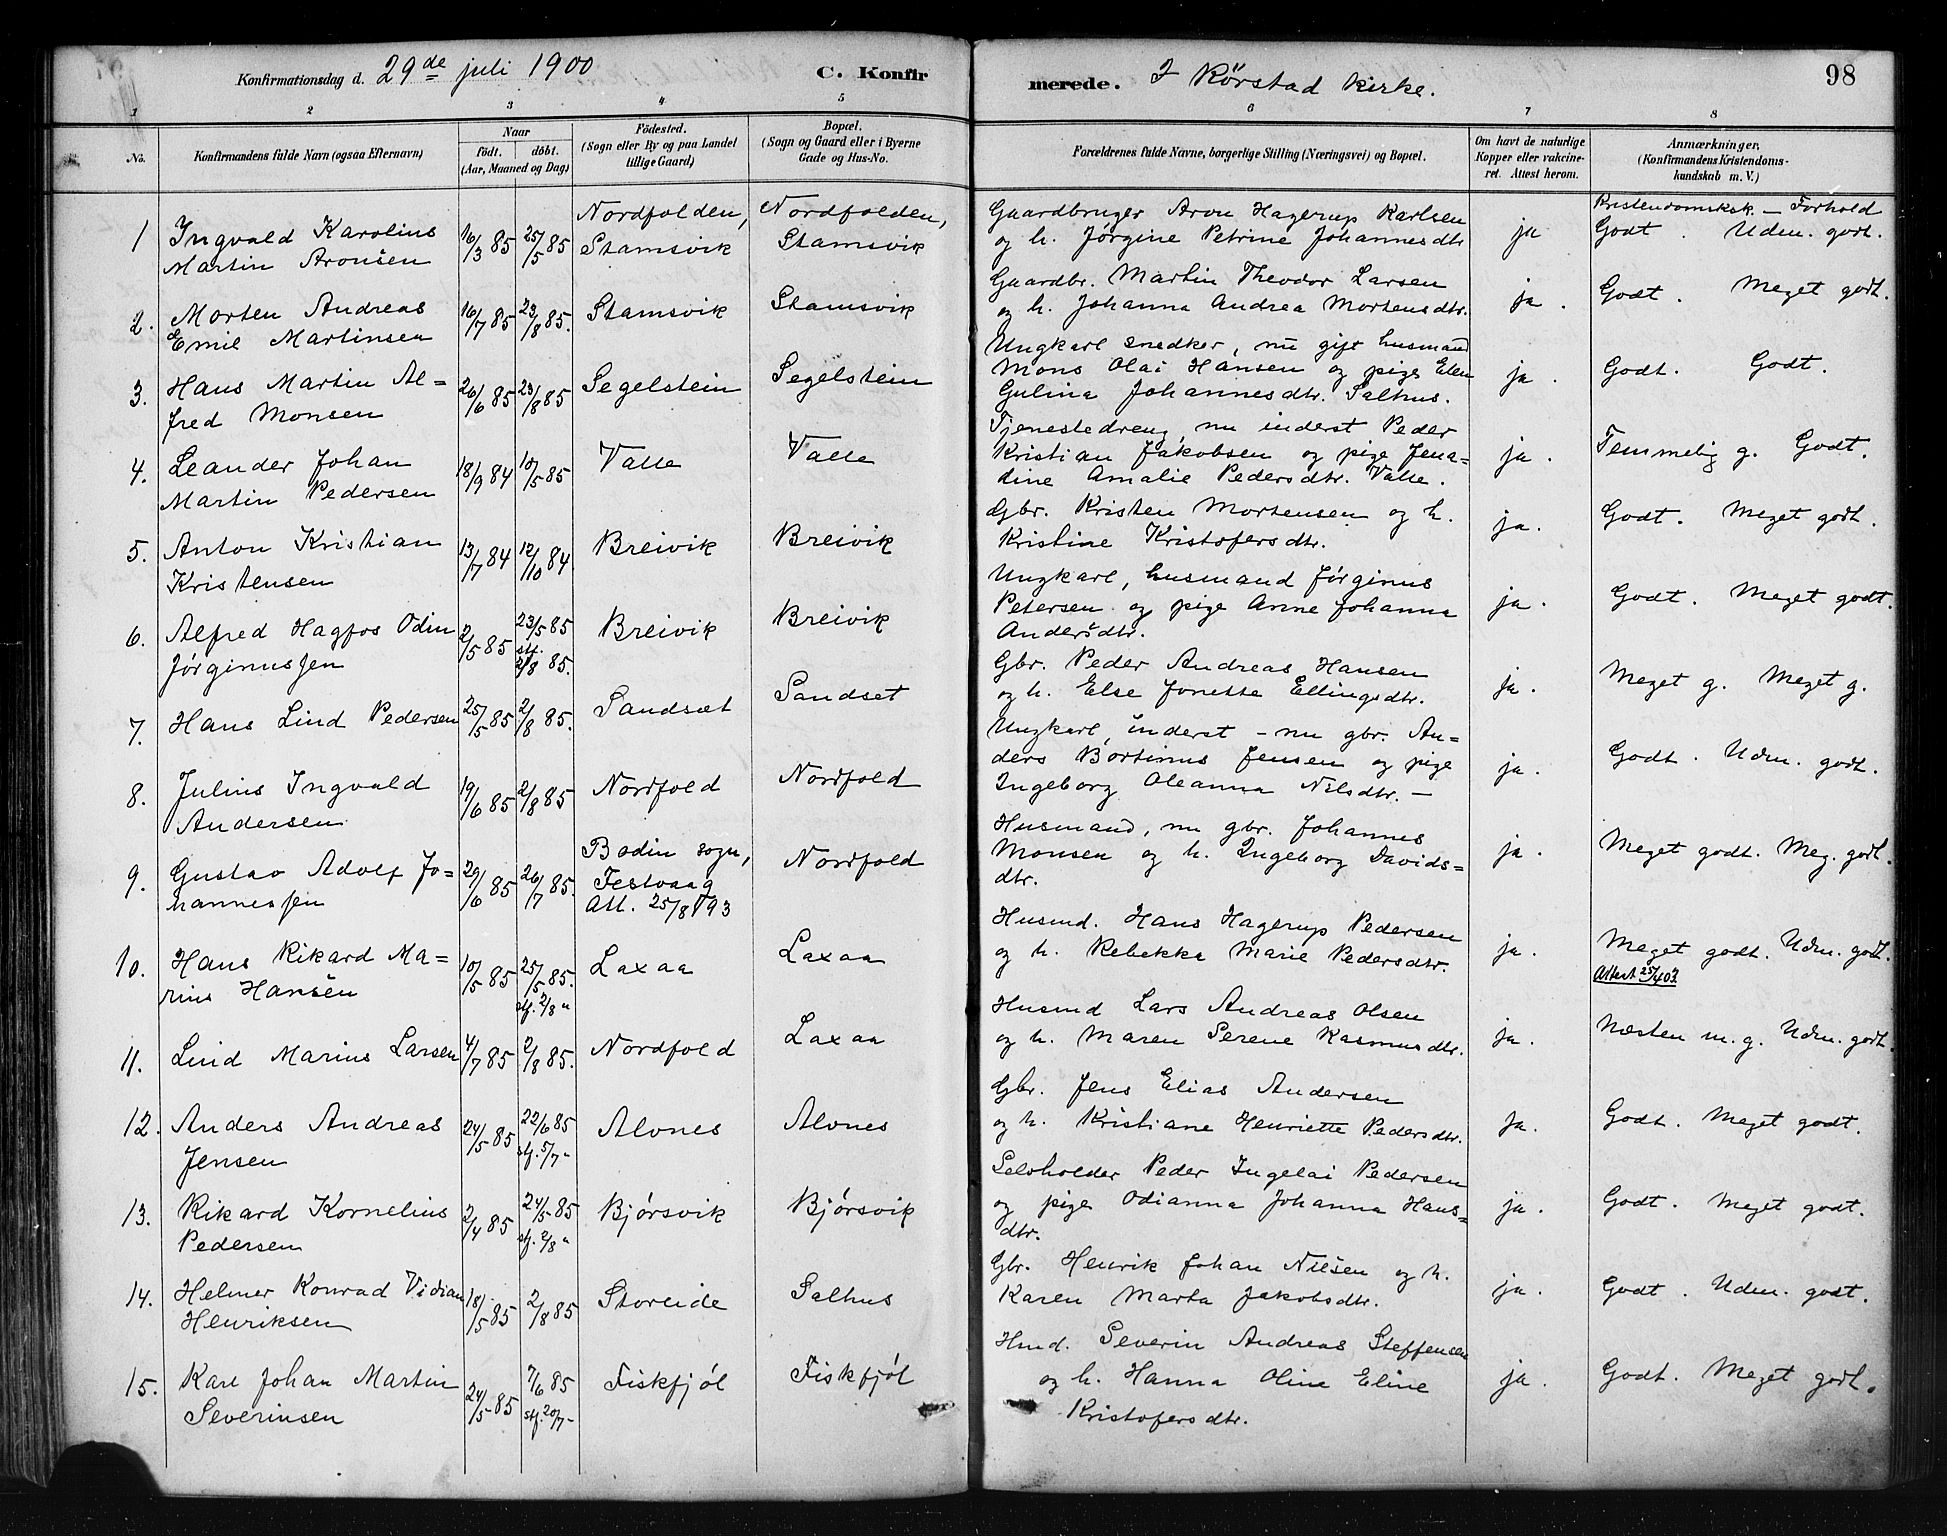 Konfirmationsdag d. 29de juli 1900 C. Konfirmerede. I Rörstad kirke. 98
1 2 3 4 5 6 7 8
No.
Konfirmandens fulde Navn (ogsaa Efternavn)
Naar
födt. döbt.
(Aar, Maaned og Dag)
Födested.
(Sogn eller By og paa Landet
tillige Gaard)
Bopæl.
(Sogn og Gaard eller i Byerne
Gade og Hus-No.
Forældrenes fulde Navne, borgerlige Stilling (Næringsvei) og Bopæl.
Om havt de naturlige
Kopper eller vakcine-
ret. Attest herom.
Anmærkninger.
(Konfirmandens Kristendoms-
kundskab m. V.)
Kristendomsksk. — Forhold
1 Ingvald Karolius
Martin Aronsen
16/3 85 25/5 85
Nordfolden,
Stamsvik
Nordfolden,
Stamsvik
Gaardbruger Aron Hagerup Karlsen
og h. Jørgine Petrine Johannesdtr
ja
Godt. Udm. godt.
2. Morten Andreas
Emil Martinsen
16/7 85 23/8 85.
Stamsvik
Stamsvik
Gaardbr. Martin Theodor Larsen
og h. Johanna Andrea Mortensdtr.
ja.
Godt. Meget godt.
3. Hans Martin Al=
fred Monsen
26/6 85 23/8 85
Segelstein
Segelstein
Ungkarl snedker, nu gift husmand
Mons Olai Hansen og pige Elen
Gulina Johannesdtr. Salhus.
ja.
Godt. Godt.
4. Leander Johan
Martin Pedersen
18/9 84 10/5 85
Valle
Valle
Tjenestedreng, nu inderst Peder
Kristian Jakobsen og pige Jena=
dine Amalie Pedersdtr. Valle.
ja.
Temmelig g. Godt.
5. Anton Kristian
Kristensen
13/7 84 12/10 84
Breivik
Breivik
Gbr. Kristen Mortensen og h.
Kristine Kristofersdtr.
ja.
Godt. Meget godt.
6. Alfred Hagfos Odin
Jørginussen
2/5 85 23/5 85
stf. 2/8 85.
Breivik
Breivik
Ungkarl, husmand Jørginus
Petersen og pige Anne Johanna
Andersdtr.
ja.
Godt. Meget godt.
7. Hans Lind Pedersen
25/5 85 2/8 85.
Sandsæt
Sandset
Gbr. Peder Andreas Hansen
og h. Else Jonette Ellingsdtr.
ja.
Meget g. Meget g.
8. Julius Ingvald
Andersen
19/6 85 2/8 85
Nordfold
Nordfold
Ungkarl, inderst - nu gbr. An=
ders Bortinus Jensen og pige
Ingeborg Oleanna Nilsdtr. —
ja.
Godt. Udm. godt.
9. Gustav Adolf Jo=
hannessen
29/6 85 26/7 85.
Bodin sogn,
Festvaag
Att. 25/8 93
Nordfold
Husmand, nu gbr. Johannes
Monsen og h. Ingeborg Davids=
dtr.
ja.
Meget godt. Meg. godt.
10. Hans Rikard Ma=
rius Hansen
10/5 85 25/5 85.
stf. 2/8 "
Laxaa
Laxaa
Husmd. Hans Hagerup Pedersen
og h. Rebekka Marie Pedersdtr.
ja.
Meget godt. Udm. godt.
Attest 25/4 03
11. Lind Marius Larsen
4/7 85 2/8 85.
Nordfold
Laxaa
Husmd Lars Andreas Olsen
og h. Maren Serene Rasmusdtr.
ja.
Næsten m. g. Udm. godt.
12. Anders Andreas
Jensen
24/5 85 22/6 85
stf. 5/7 "
Alvnes
Alvnes
Gbr. Jens Elias Andersen
og h. Kristiane Henriette Pedersdtr.
ja.
Godt. Meget godt.
13. Rikard Kornelius
Pedersen
2/4 85 24/5 85
stf. 2/8 "
Bjørsvik
Bjørsvik
Selvholder Peder Ingelai Pedersen
og pige Odianna Johanna Hans=
dtr.
ja.
Godt. Meget godt.
14. Helmer Konrad Vidian
Henriksen
18/5 85 2/8 85
Storeide
Salhus
Gbr. Henrik Johan Nilsen og h.
Karen Marta Jakobsdtr.
ja.
Godt. Udm. godt.
15. Karl Johan Martin
Severinsen
24/5 85 7/6 85
stf. 20/7 -
Fiskfjøl
Fiskfjøl
Hmd. Severin Andreas Steffensen
og h. Hanna Oline Eline
Kristofersdtr.
ja.
Godt. Meget godt.